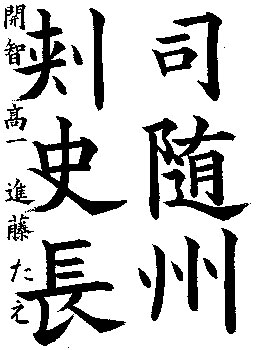 司随州
刺史長
開智高一 進藤たえ